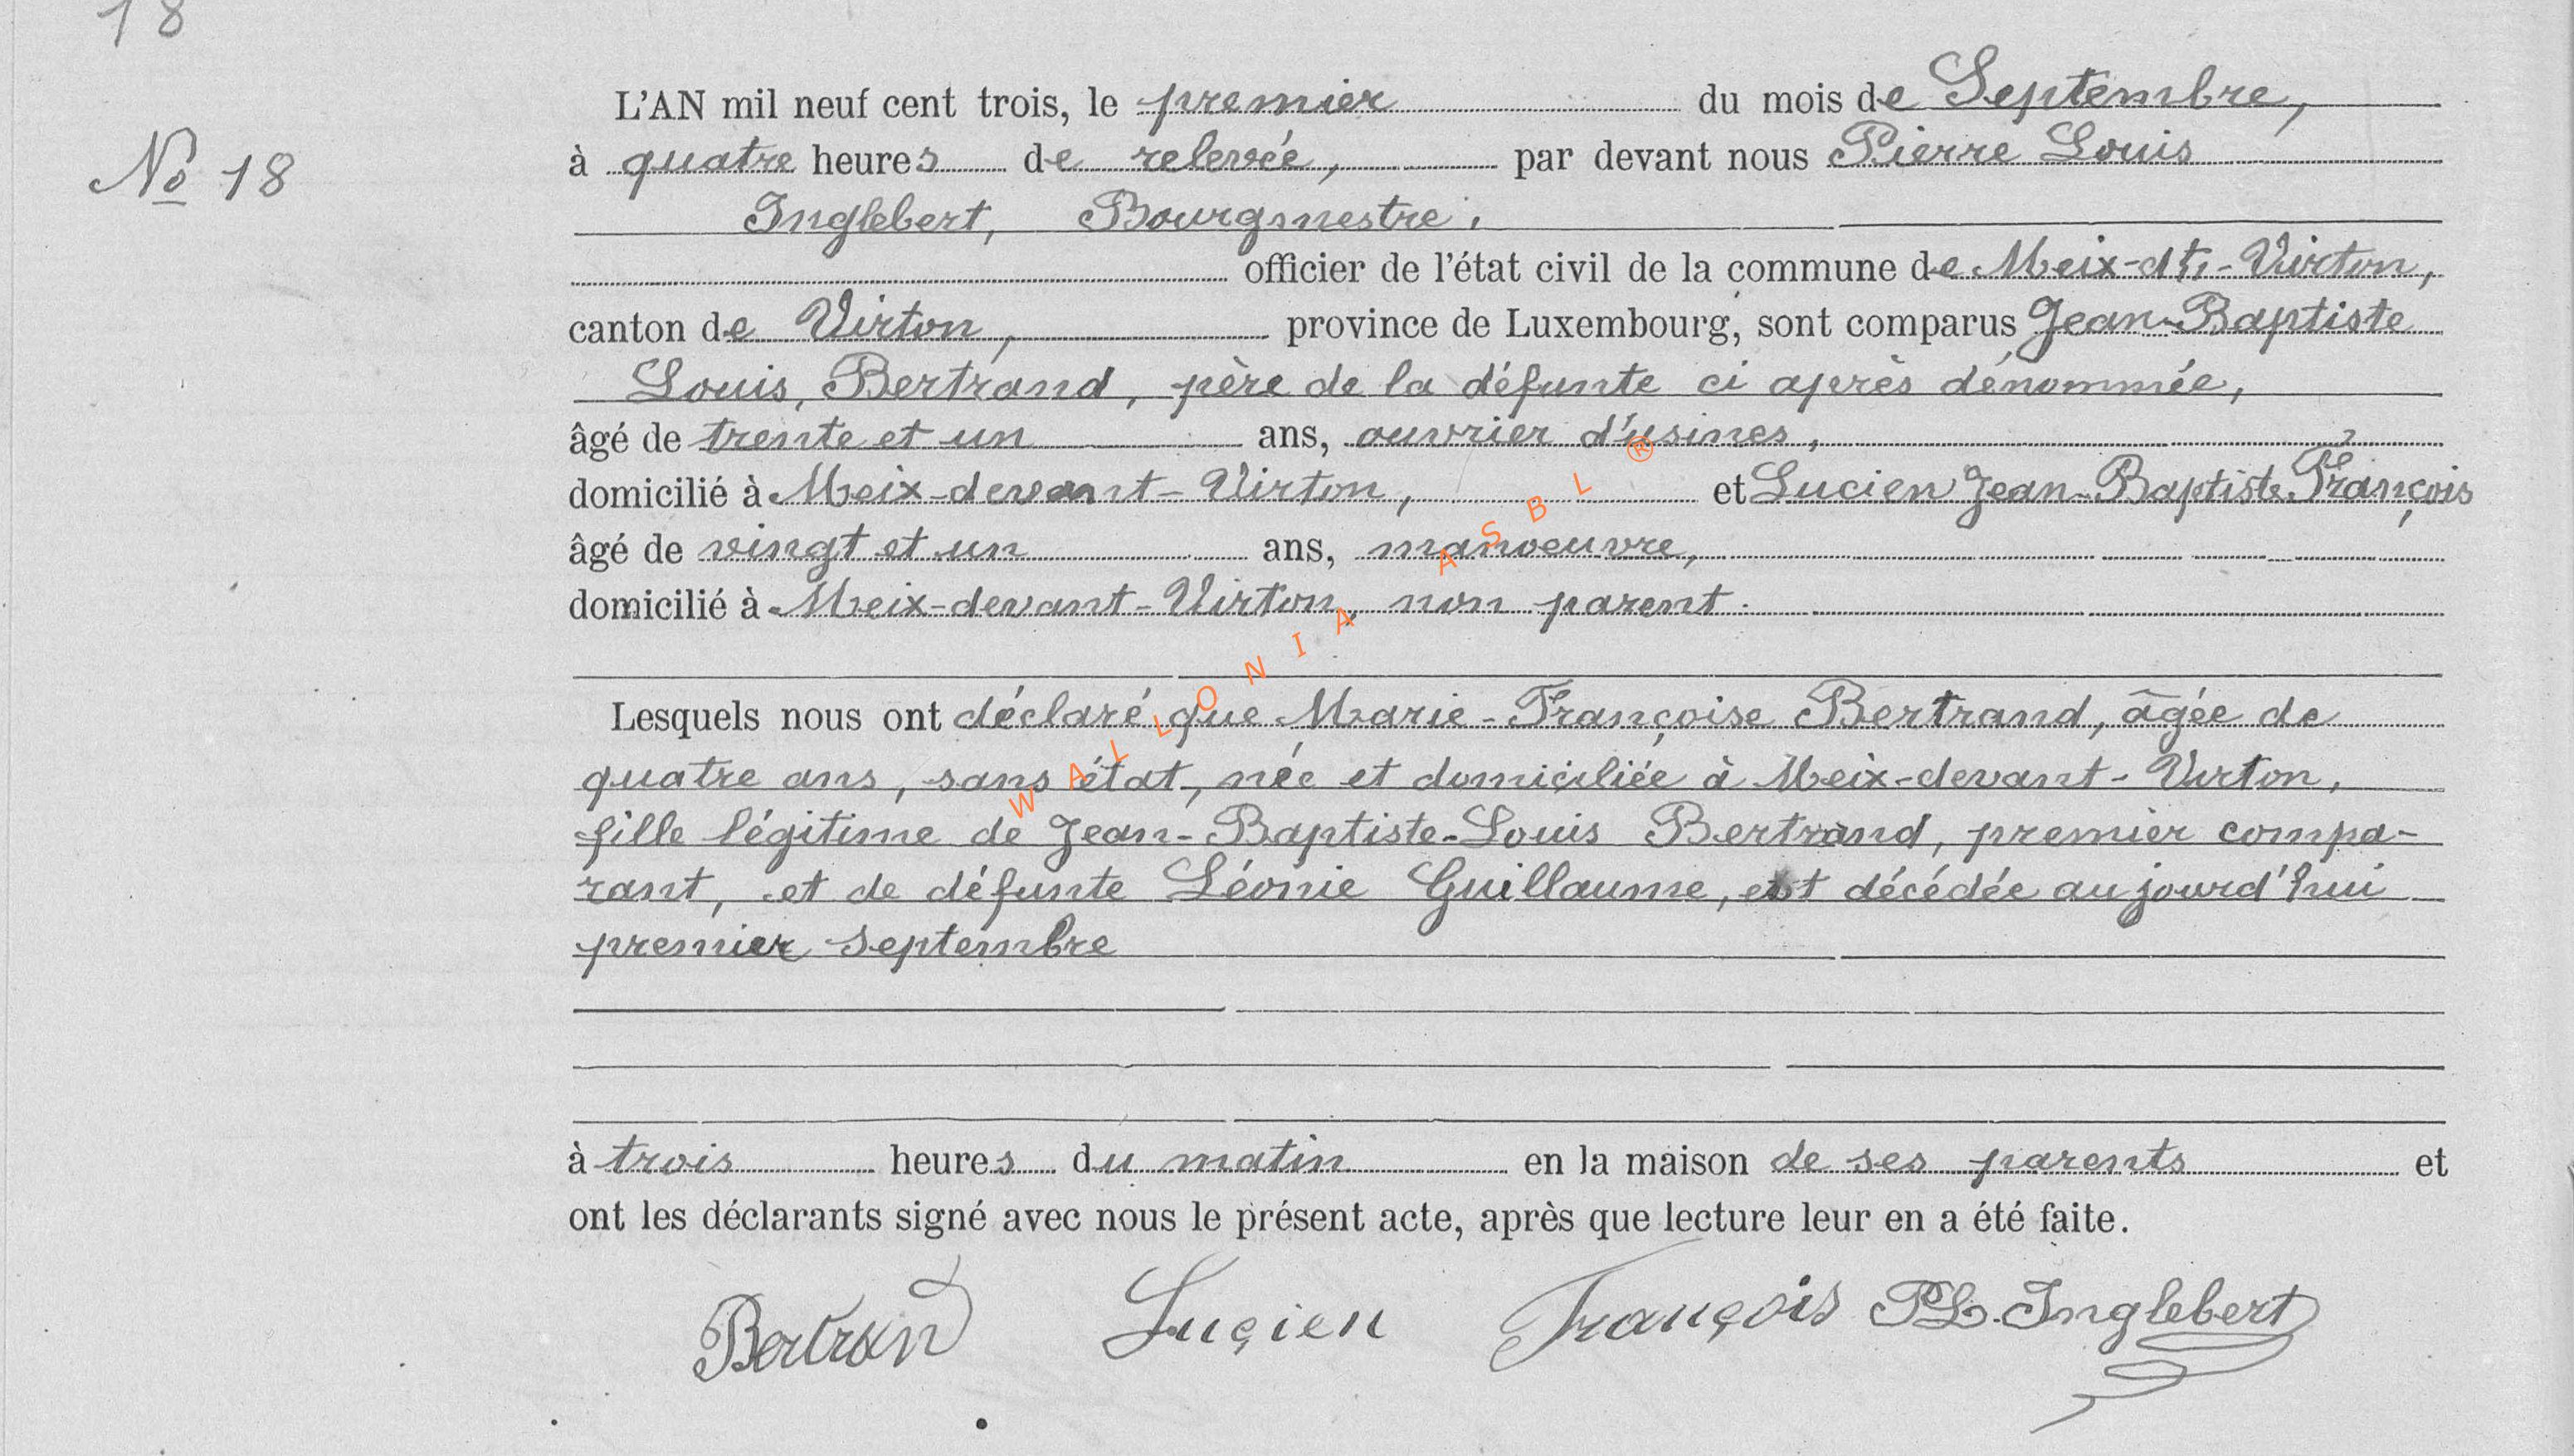 18
L'AN mil neuf cent trois, le premier du mois de Septembre,
No 18
à quatre heures de relevée, par devant nous Pierre Louis
Inglebert, Bourgmestre,
officier de l'état civil de la commune de Meix-dt-Virton,
canton de Virton, province de Luxembourg, sont comparus Jean-Baptiste
Louis, Bertrand, père de la défunte ci après dénommée,
âgé de trente et un ans, ouvrier d'usines,
domicilié à Meix-devant-Virton, et Lucien Jean-Baptiste François
âgé de vingt et un ans, manoeuvre,
domicilié à Meix-devant-Virton, non parent.
Lesquels nous ont déclaré que Marie-Françoise Bertrand, âgée de
quatre ans, sans état, née et domiciliée à Meix-devant-Virton,
fille légitime de Jean-Baptiste-Louis Bertrand, premier compa-
rant, et de défunte Léonie Guillaume, est décédée aujourd'hui
premier septembre
à trois heures du matin en la maison de ses parents et
ont les déclarants signé avec nous le présent acte, après que lecture leur en a été faite.
Bertrand Luçien François PL. Inglebert
WALLONIA ASBL ®